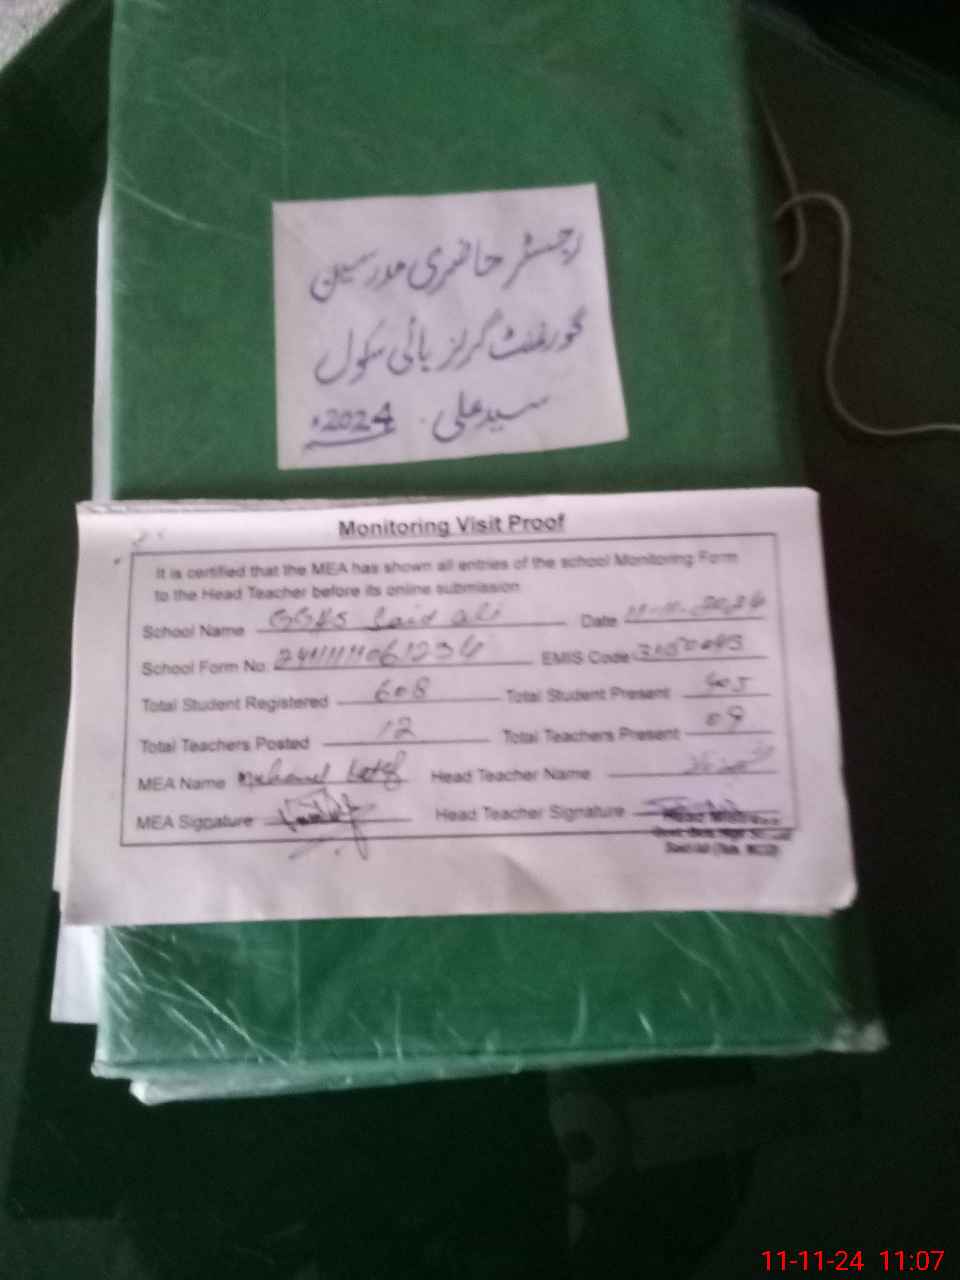 رجسٹر حاضری مدرسین
گورنمنٹ گرلز ہائی سکول
سید علی 2024ء
Monitoring Visit Proof
It is certified that the MEA has shown all entries of the school Monitoring Form
to the Head Teacher before its online submission
School Name GGHS Said ali Date 11-11-2024
School Form No. EMIS Code
Total Student Registered 608 Total Student Present 405
Total Teachers Posted 12 Total Teachers Present 09
MEA Name Head Teacher Name
MEA Signature Head Teacher Signature
11-11-24 11:07